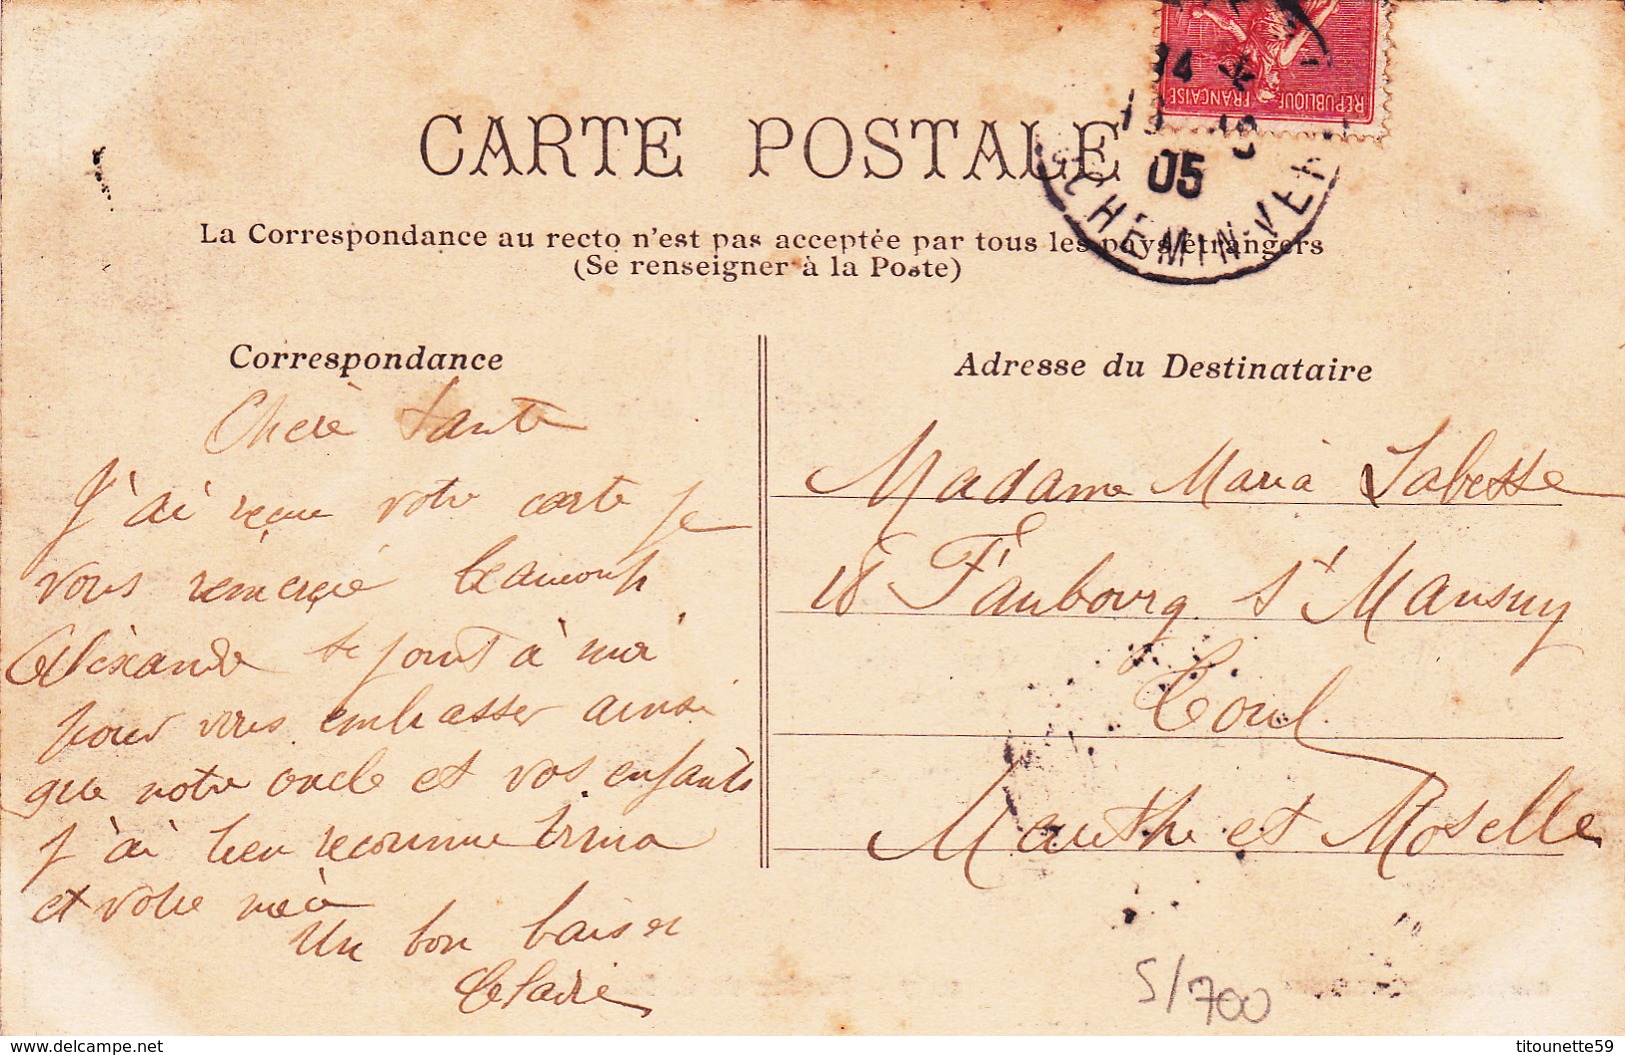 RÉPUBLIQUE FRANÇAISE
05
CHEMIN-VERT
CARTE POSTALE
La Correspondance au recto n'est pas acceptée par tous les pays étrangers
(Se renseigner à la Poste)
Correspondance
Chere Tante
J'ai reçue votre carte je
vous remercie beaucoup
Alexandre se joint à moi
pour vous embrasser ainsi
que notre oncle et vos enfants
j'ai bien reconnue Irma
et votre mère
Un bon baiser
Claire
Adresse du Destinataire
Madame Maria Labesse
18 Faubourg St Mansuy
Toul
Meurthe et Moselle
5/700
www.delcampe.net
titounette59